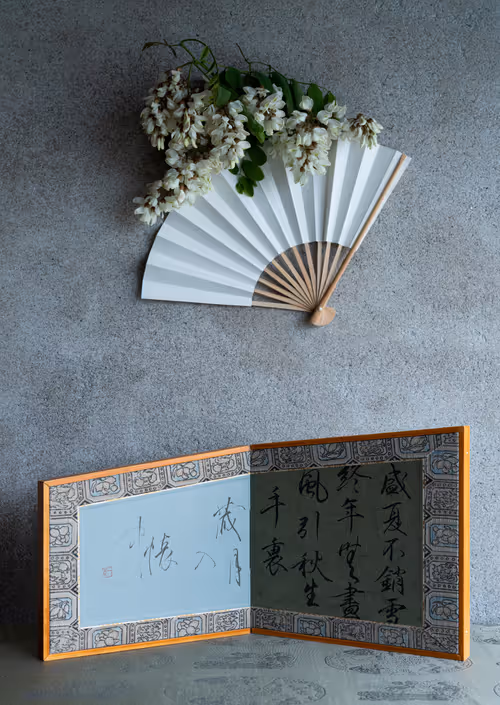 盛夏不銷雪
終年無盡
風引秋生
手裏
藏月
入
懷
中